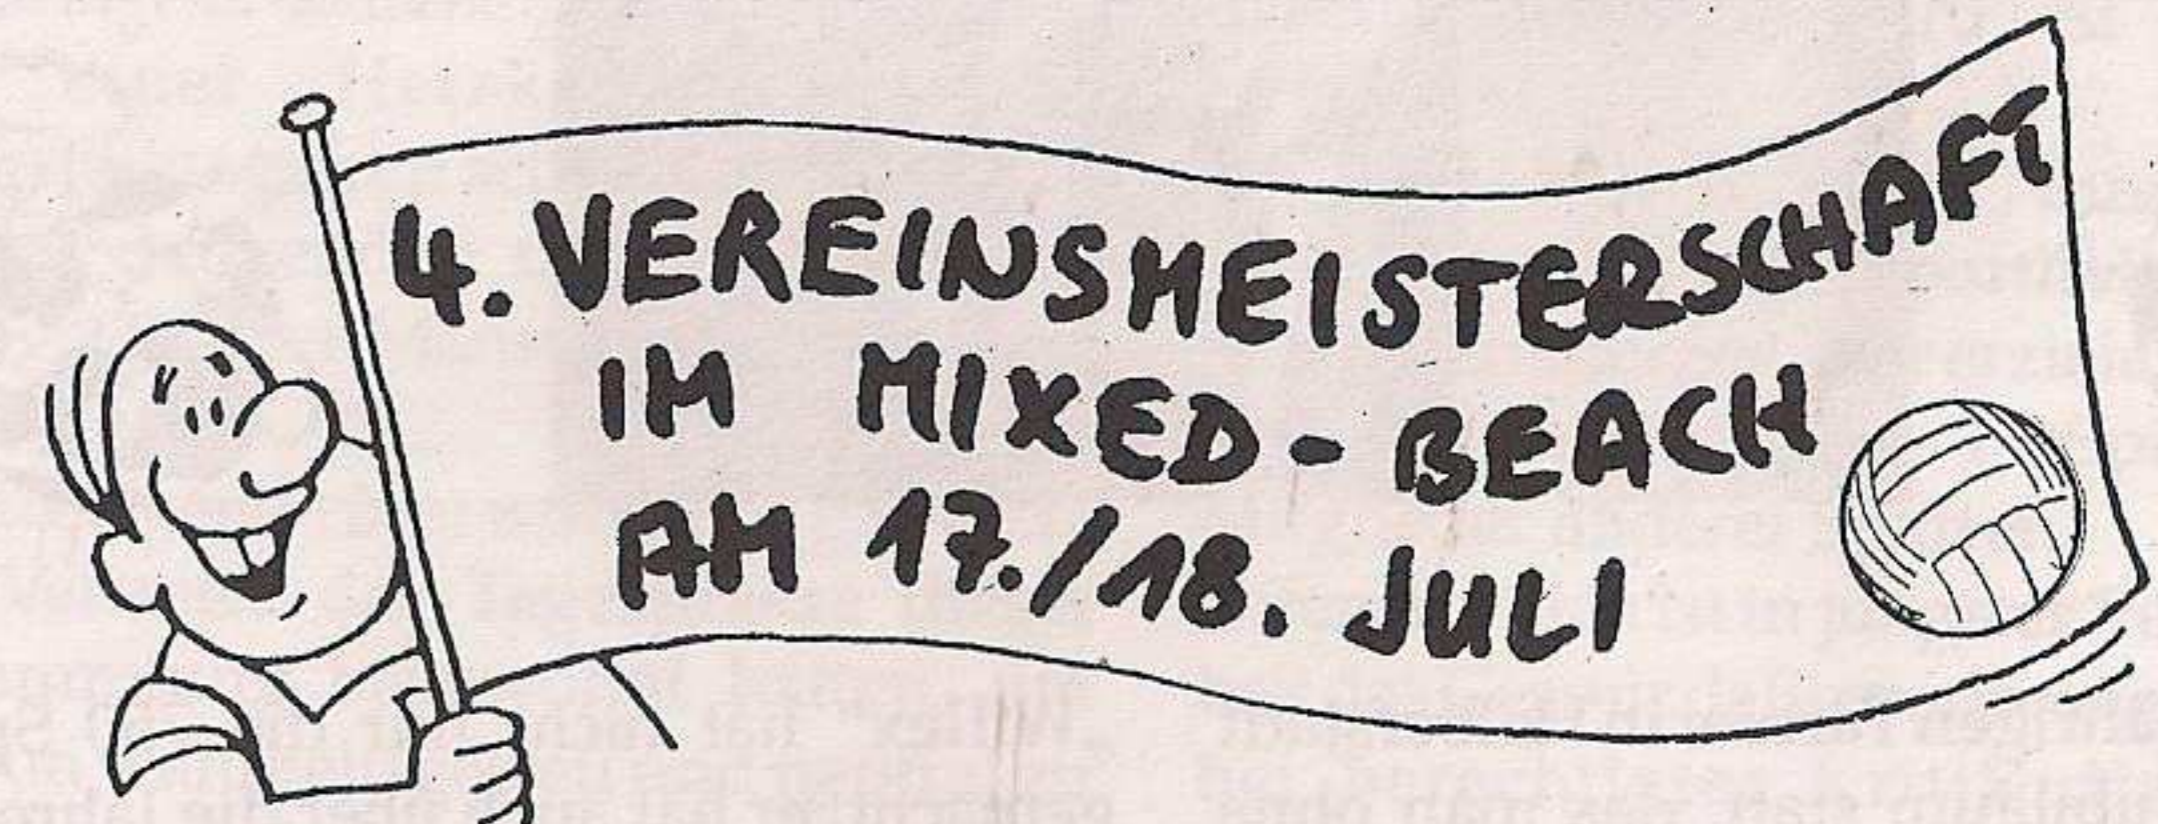 4. VEREINSMEISTERSCHAFT
IM MIXED-BEACH
AM 17./18. JULI